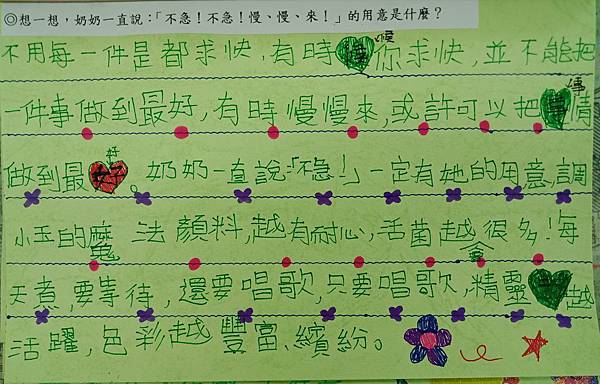 ◎想一想，奶奶一直說：「不急！不急！慢、慢、來！」的用意是什麼？
不用每一件是都求快，有時你求快，並不能把
一件事做到最好，有時慢慢來，或許可以把事情
做到最好。奶奶一直說：「不急！」一定有她的用意，調
小玉的魔法顏料，越有耐心，活菌越會很多！每
天煮，要等待，還要唱歌，只要唱歌，精靈越
活躍，色彩越豐富、繽紛。